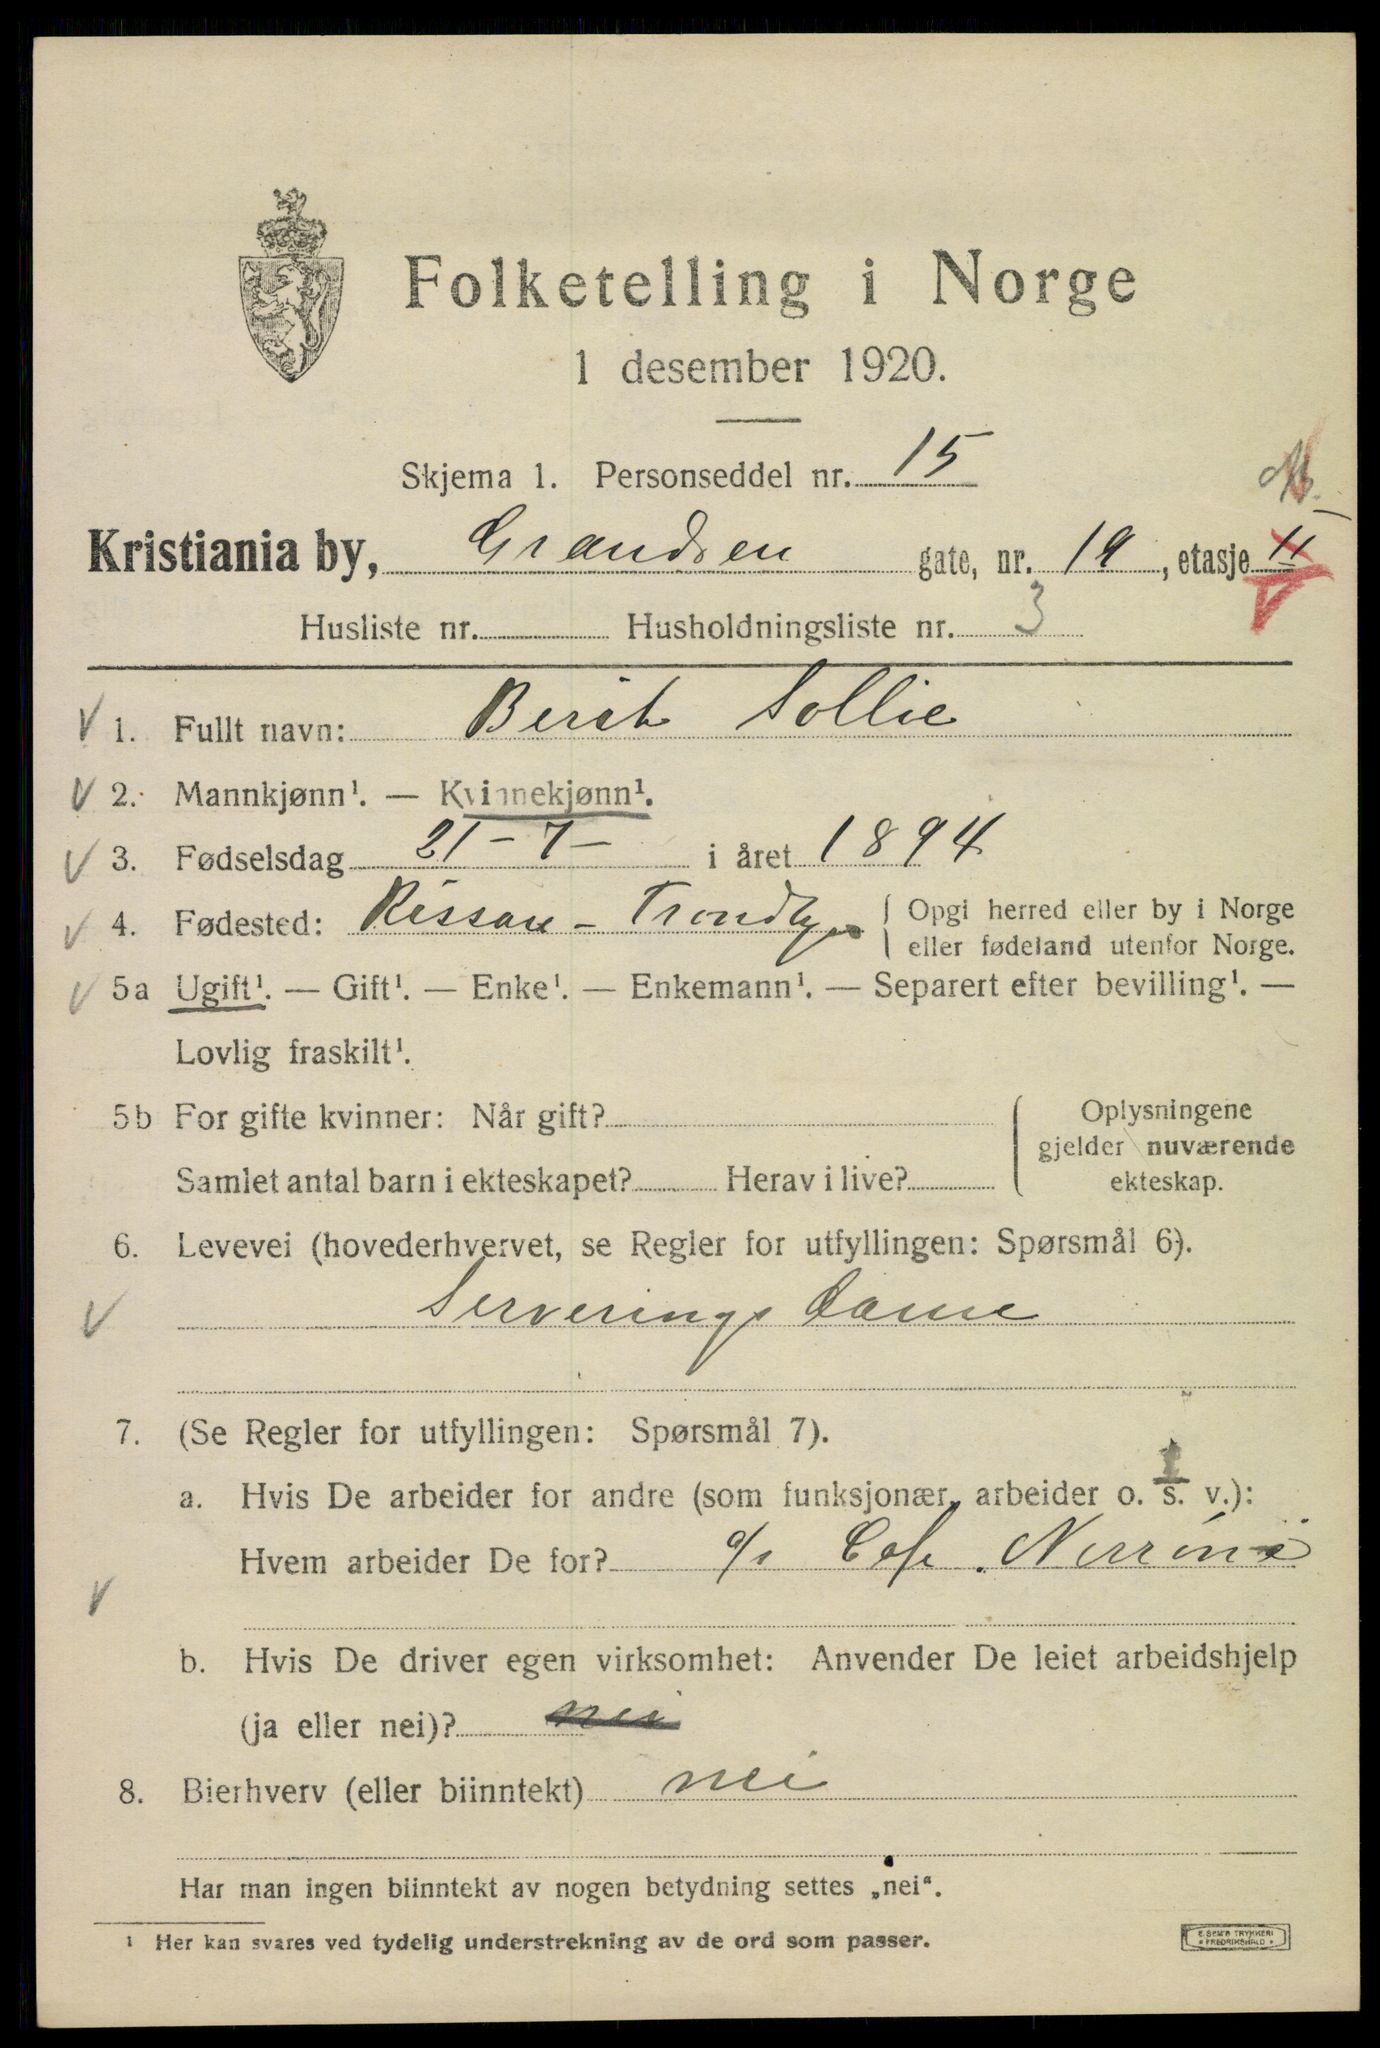 Folketelling i Norge
1 desember 1920.
Skjema 1. Personseddel nr. 15
Kristiania by, Grandsen gate, nr. 19, etasje II
Husliste nr. Husholdningsliste nr. 3
1. Fullt navn: Berit Sollie
2. Mannkjønn¹. — Kvinnekjønn¹.
3. Fødselsdag 21-7- i året 1894
4. Fødested: Rissan - Trondhj. { Opgi herred eller by i Norge
eller fødeland utenfor Norge.
5a Ugift¹. — Gift¹. — Enke¹. — Enkemann¹. — Separert efter bevilling¹. —
Lovlig fraskilt¹.
5b For gifte kvinner: Når gift? { Oplysningene
gjelder nuværende
Samlet antal barn i ekteskapet? Herav i live? ekteskap.
6. Levevei (hovederhvervet, se Regler for utfyllingen: Spørsmål 6).
Serveringsdame
7. (Se Regler for utfyllingen: Spørsmål 7).
a. Hvis De arbeider for andre (som funksjonær, arbeider o. s. v.):
Hvem arbeider De for? a/s Cafe Norrøna
b. Hvis De driver egen virksomhet: Anvender De leiet arbeidshjelp
(ja eller nei)? nei
8. Bierhverv (eller biinntekt) nei
Har man ingen biinntekt av nogen betydning settes „nei“.
¹ Her kan svares ved tydelig understrekning av de ord som passer.
E. SEM'S TRYKKERI
FREDRIKSHALD